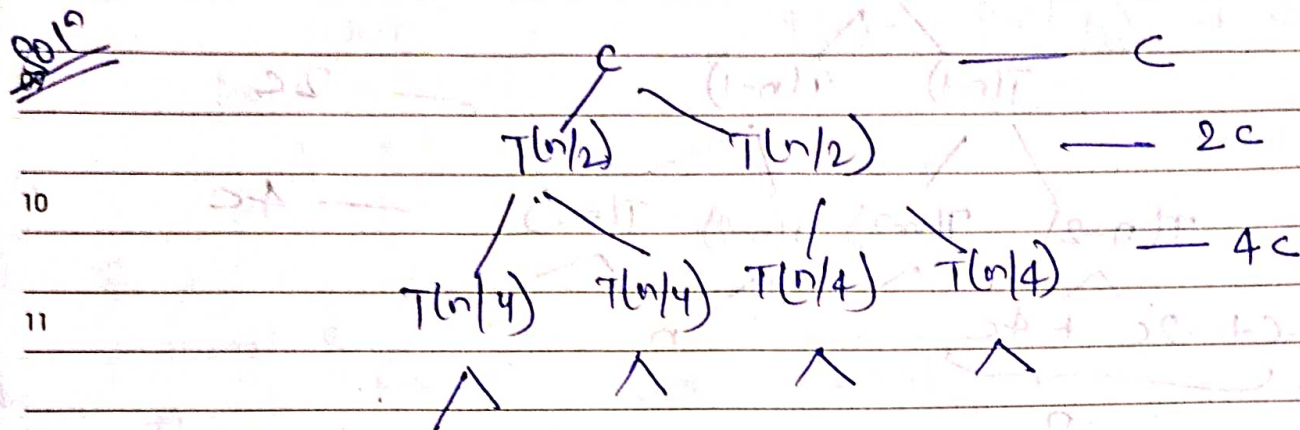 Solⁿ
C — C
T(n/2) T(n/2) — 2C
10
T(n/4) T(n/4) T(n/4) T(n/4) — 4C
11